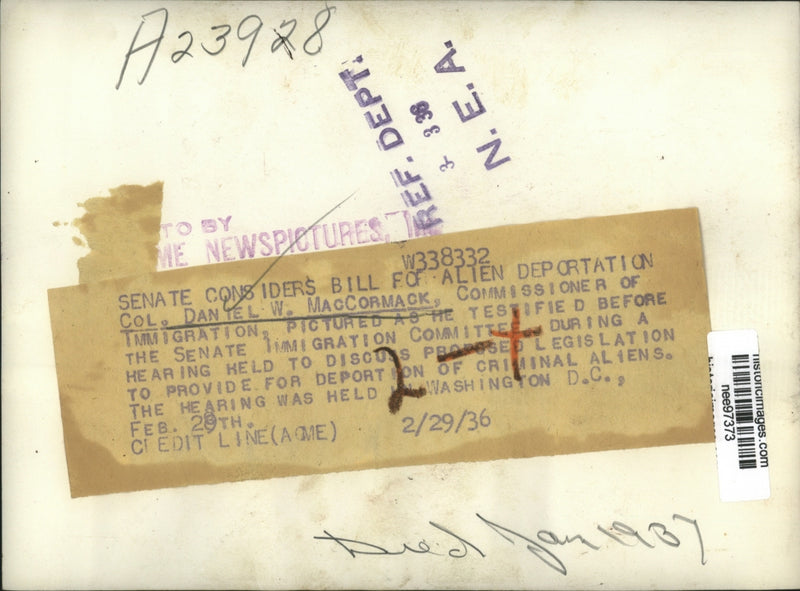 A23928
REF. DEPT.
3 3 36
N. E. A.
TO BY
ME NEWSPICTURES,
W338332
SENATE CONSIDERS BILL FOR ALIEN DEPORTATION
COL. DANIEL W. MACCORMACK, COMMISSIONER OF
IMMIGRATION, PICTURED AS HE TESTIFIED BEFORE
THE SENATE IMMIGRATION COMMITTEE, DURING A
HEARING HELD TO DISCUSS PROPOSED LEGISLATION
TO PROVIDE FOR DEPORTION OF CRIMINAL ALIENS.
THE HEARING WAS HELD IN WASHINGTON D.C.,
FEB. 29TH.
CREDIT LINE(ACME) 2/29/36
2 - +
historicimages.com
nee97373
Died Jan 1937